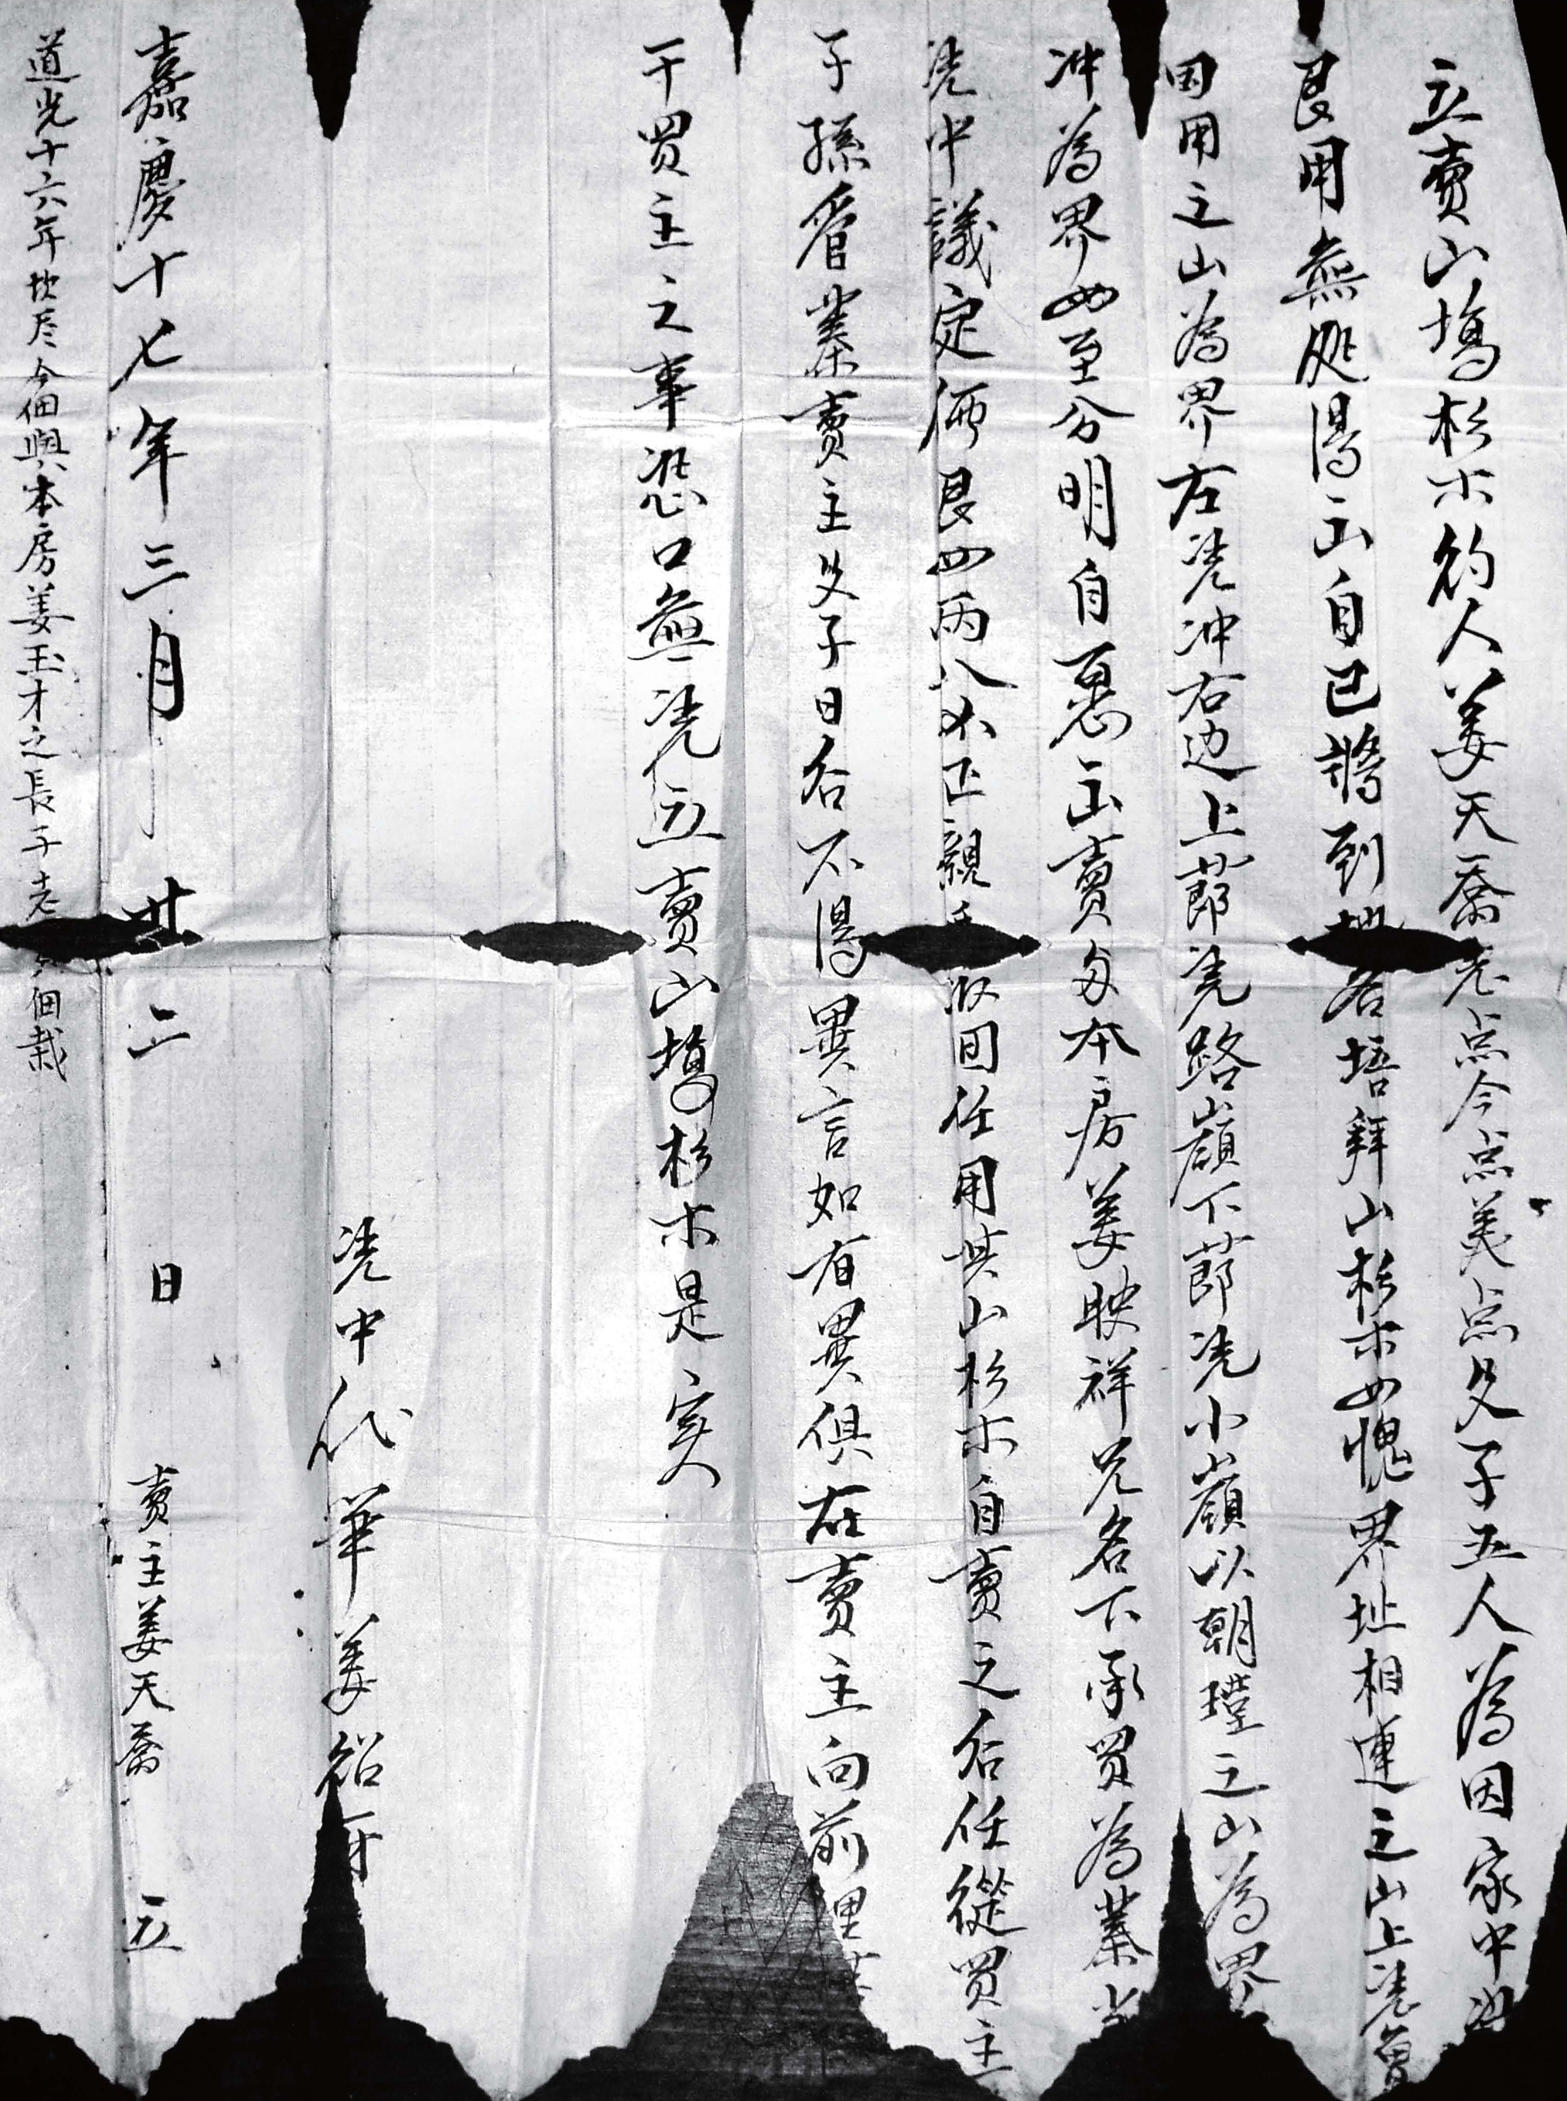 立賣山塲杉木約人姜天喬老点今点美点父子五人為因家中
艮用無処得出自己將到地名培拜山杉木四愧界址相連之山上凭
田用之山為界左凭冲右边上節凭路嶺下節凭小嶺以朝瑾之山為界
冲為界四至分明自愿出賣与本房姜映祥兄名下承買為業
凭中議定價艮四兩八分正親手収回任用其山杉木自賣之后任從買主
子孫管業賣主父子日后不得異言如有異俱在賣主向前理
干買主之事恐口無凭立賣山塲杉木是实
凭中代筆姜紹
嘉慶十七年三月廿二日 賣主姜天喬 立
道光十六年坎尽今佃與本房姜玉才之長子老 佃栽